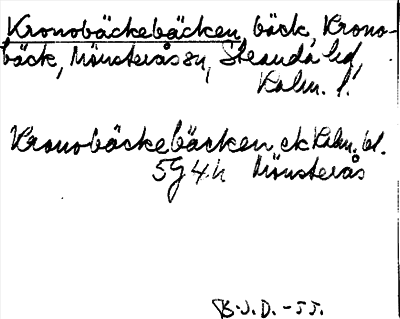 Kronobäckebäcken, bäck, Krono-
bäck, Mönsterås sn, Stranda hd,
Kalm. l.
Kronobäckebäcken ek Kalm. bl.
5G4h Mönsterås
B.J.D. -55.